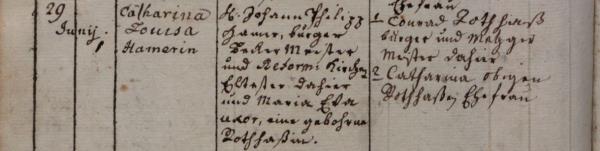 Ehefrau
29 Junij.
Catharina
Louisa
Hamerin
H. Johann Philipp
Hamer, burger
Becker Meister
und Reform. Kirchen
Eltester dahier
und Maria Eva
uxor, eine gebohrne
Rothhaßin.
1 Conrad Rothhaß
burger und Metzger
Meister dahier
2 Catharina obigen
Rothhaßen Ehefrau